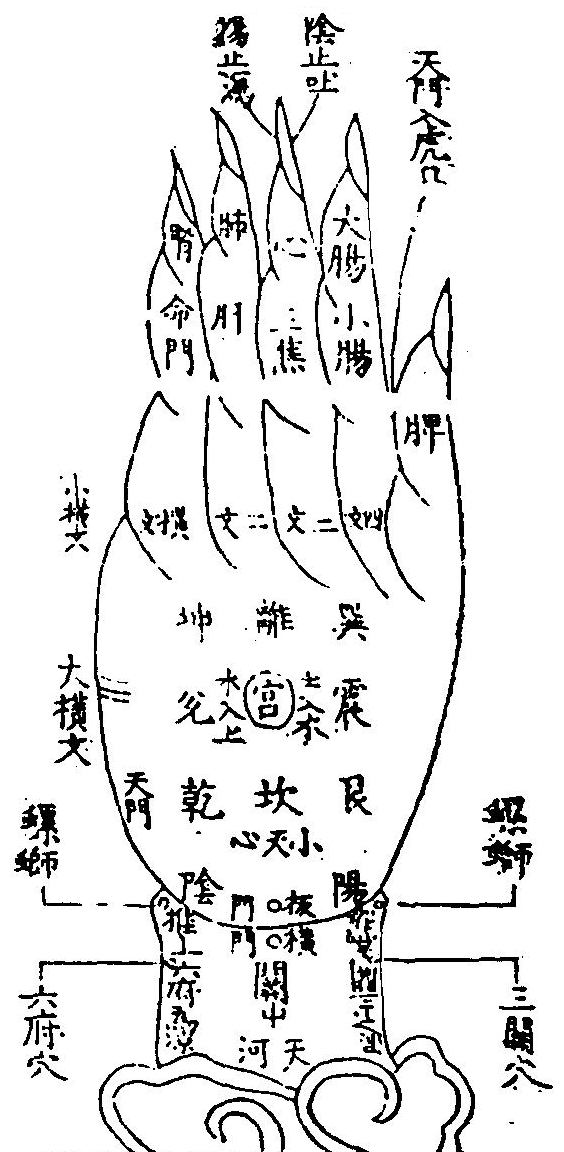 陰止吐
陽止瀉
天門入虎口
大腸
小腸
心
三焦
肺
肝
腎
命門
脾
小横文
四文
二文
二文
横文
巽
離
坤
震
宮
兌
土入水
水入土
大横文
艮
坎
乾
天門
小天心
螺螄
螺螄
陽
陰
板門
横門
三關穴
推
六府為涼
六府穴
關中
天河